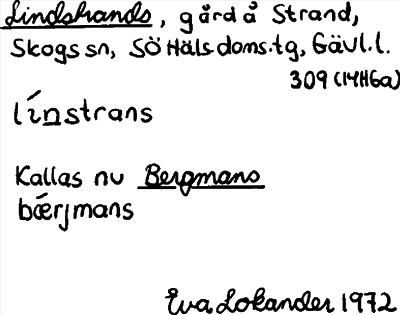 Lindstrands, gård å Strand,
Skogs sn, SÖ Hälsdoms.tg, Gävl.l.
309 (14H6a)
línstrans
Kallas nu Bergmans
bǽrjmans
Eva Lokander 1972